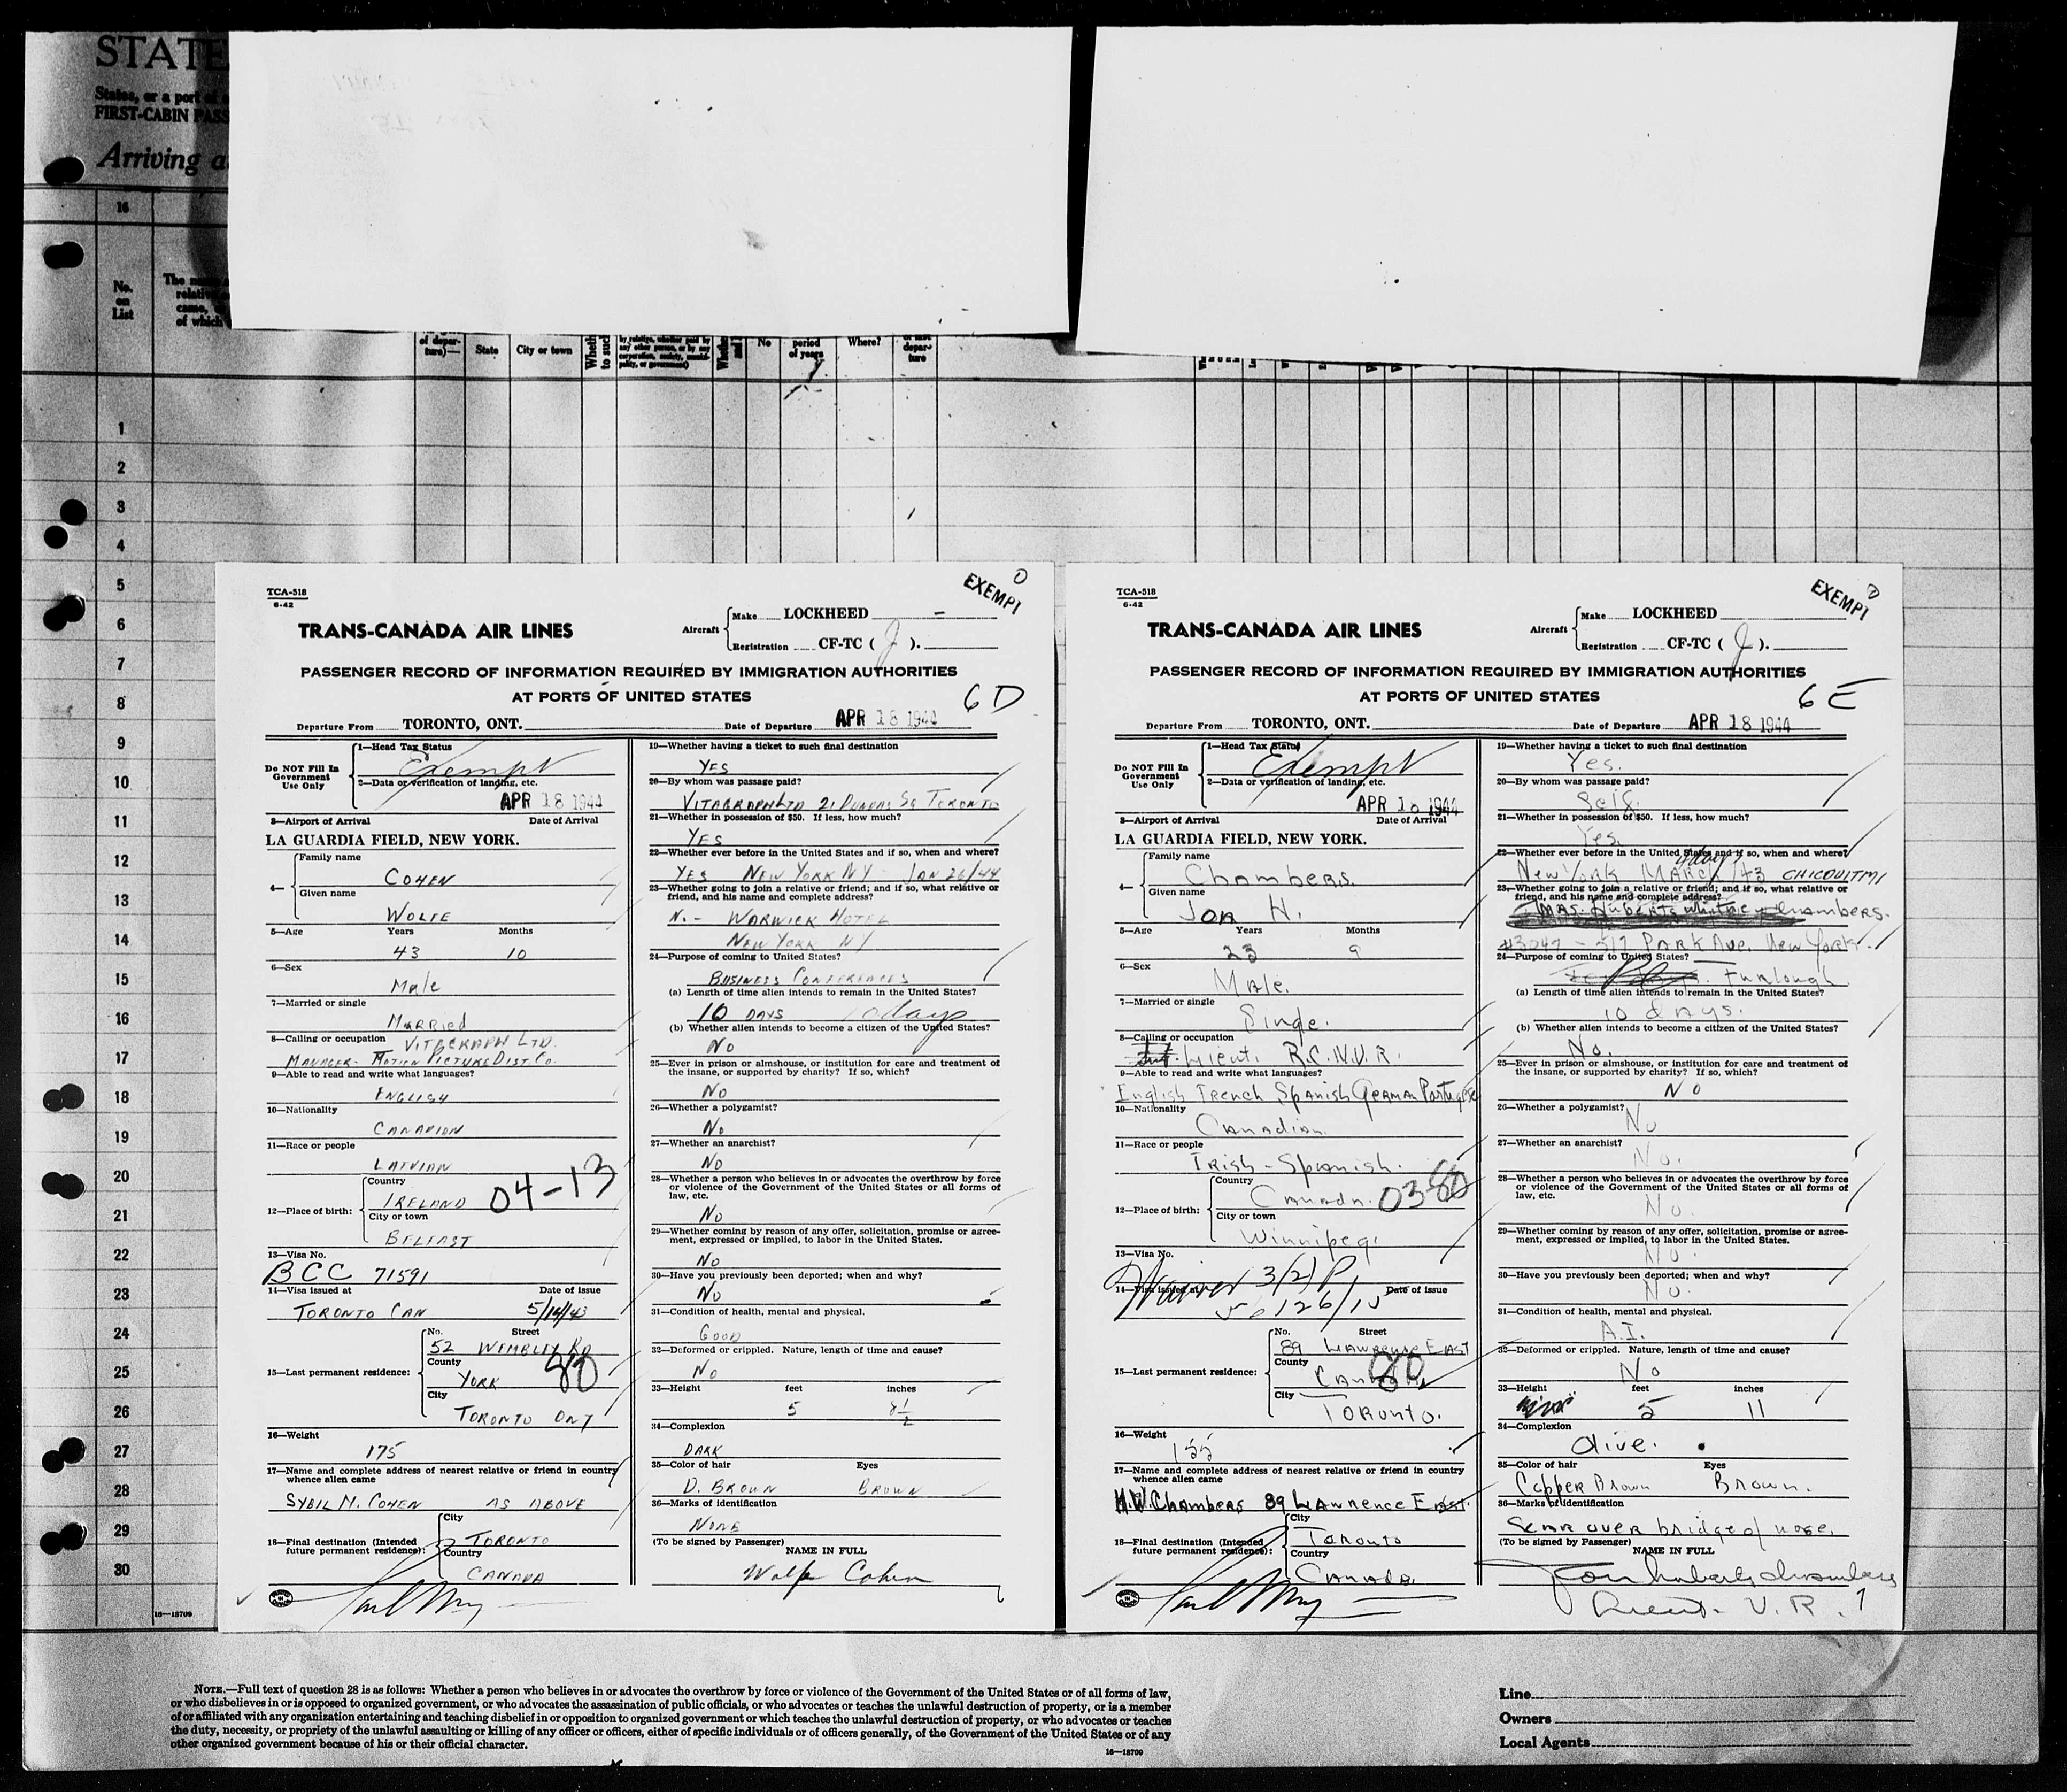 STATE
States, or a port of
FIRST-CABIN PASS
Arriving a
16
No.
on
List
of depar-
ture)—
State
City or town
by relative, whether paid by
any other person, or by any
corporation, society, munici-
pality, or government)
No
period
of years
Where?
depar-
ture
1
2
3
4
5
6
7
8
9
10
11
12
13
14
15
16
17
18
19
20
21
22
23
24
25
26
27
28
29
30
16—18709
TCA-518
6-42
EXEMPT
TRANS-CANADA AIR LINES
Aircraft
Make LOCKHEED
Registration CF-TC ( J ).
PASSENGER RECORD OF INFORMATION REQUIRED BY IMMIGRATION AUTHORITIES
AT PORTS OF UNITED STATES
6 D
Departure From TORONTO, ONT. Date of Departure APR 18 1944
Do NOT Fill In
Government
Use Only
1—Head Tax Status
Exempt
2—Data or verification of landing, etc.
APR 18 1944
3—Airport of Arrival Date of Arrival
LA GUARDIA FIELD, NEW YORK.
4—
Family name
COHEN
Given name
WOLFE
5—Age Years Months
43 10
6—Sex
Male
7—Married or single
MARRIED
8—Calling or occupation VITAGRAPH LTD.
MANAGER- MOTION PICTURE DIST. CO.
9—Able to read and write what languages?
ENGLISH
10—Nationality
CANADIAN
11—Race or people
LATVIAN
12—Place of birth:
Country
IRELAND 04-13
City or town
BELFAST
13—Visa No.
BCC 71591
14—Visa issued at Date of issue
TORONTO CAN 5/14/43
15—Last permanent residence:
No. Street
52 WEMBLEY RD
County
YORK 80
City
TORONTO ONT
16—Weight
175
17—Name and complete address of nearest relative or friend in country
whence alien came
SYBIL M. COHEN AS ABOVE
18—Final destination (Intended
future permanent residence):
City
TORONTO
Country
CANADA
19—Whether having a ticket to such final destination
YES
20—By whom was passage paid?
VITAGRAPH LTD 21 DUNDAS SQ TORONTO
21—Whether in possession of $50. If less, how much?
YES
22—Whether ever before in the United States and if so, when and where?
YES NEW YORK NY - JAN 26/44
23—Whether going to join a relative or friend; and if so, what relative or
friend, and his name and complete address?
N.- WARWICK HOTEL
NEW YORK NY
24—Purpose of coming to United States?
BUSINESS CONFERENCES
(a) Length of time alien intends to remain in the United States?
10 DAYS 10 days
(b) Whether alien intends to become a citizen of the United States?
NO
25—Ever in prison or almshouse, or institution for care and treatment of
the insane, or supported by charity? If so, which?
NO
26—Whether a polygamist?
NO
27—Whether an anarchist?
NO
28—Whether a person who believes in or advocates the overthrow by force
or violence of the Government of the United States or all forms of
law, etc.
NO
29—Whether coming by reason of any offer, solicitation, promise or agree-
ment, expressed or implied, to labor in the United States.
NO
30—Have you previously been deported; when and why?
NO
31—Condition of health, mental and physical.
GOOD
32—Deformed or crippled. Nature, length of time and cause?
NO
33—Height feet inches
5 8½
34—Complexion
DARK
35—Color of hair Eyes
D. BROWN BROWN
36—Marks of identification
NONE
(To be signed by Passenger) NAME IN FULL
Wolfe Cohen
TCA-518
6-42
EXEMPT
TRANS-CANADA AIR LINES
Aircraft
Make LOCKHEED
Registration CF-TC ( J ).
PASSENGER RECORD OF INFORMATION REQUIRED BY IMMIGRATION AUTHORITIES
AT PORTS OF UNITED STATES
6 E
Departure From TORONTO, ONT. Date of Departure APR 18 1944
Do NOT Fill In
Government
Use Only
1—Head Tax Status
Exempt
2—Data or verification of landing, etc.
APR 18 1944
3—Airport of Arrival Date of Arrival
LA GUARDIA FIELD, NEW YORK.
4—
Family name
Chambers.
Given name
Jon H.
5—Age Years Months
23 9
6—Sex
Male.
7—Married or single
Single.
8—Calling or occupation
Lieut. R.C.N.V.R.
9—Able to read and write what languages?
English French Spanish German Portugese
10—Nationality
Canadian
11—Race or people
Irish-Spanish.
12—Place of birth:
Country
Canada. 03-80
City or town
Winnipeg.
13—Visa No.
Waiver 3(2) P,
14—Visa issued at Date of issue
56126/10
15—Last permanent residence:
No. Street
89 Lawrence East
County
Canada 80
City
Toronto.
16—Weight
155
17—Name and complete address of nearest relative or friend in country
whence alien came
H.W. Chambers 89 Lawrence East.
18—Final destination (Intended
future permanent residence):
City
Toronto
Country
Canada
19—Whether having a ticket to such final destination
Yes.
20—By whom was passage paid?
Self.
21—Whether in possession of $50. If less, how much?
Yes.
22—Whether ever before in the United States and if so, when and where?
New York MARCH /43 CHICOUTIMI
23—Whether going to join a relative or friend; and if so, what relative or
friend, and his name and complete address?
Chambers.
#3047 - 277 PARK Ave. New York.
24—Purpose of coming to United States?
Furlough
(a) Length of time alien intends to remain in the United States?
10 days.
(b) Whether alien intends to become a citizen of the United States?
No.
25—Ever in prison or almshouse, or institution for care and treatment of
the insane, or supported by charity? If so, which?
No
26—Whether a polygamist?
No
27—Whether an anarchist?
No.
28—Whether a person who believes in or advocates the overthrow by force
or violence of the Government of the United States or all forms of
law, etc.
No.
29—Whether coming by reason of any offer, solicitation, promise or agree-
ment, expressed or implied, to labor in the United States.
No.
30—Have you previously been deported; when and why?
No.
31—Condition of health, mental and physical.
A.1.
32—Deformed or crippled. Nature, length of time and cause?
No
33—Height feet inches
5 11
34—Complexion
Olive.
35—Color of hair Eyes
Copper Brown Brown.
36—Marks of identification
Scar over bridge of nose.
(To be signed by Passenger) NAME IN FULL
Chambers
Lieut. V.R.
NOTE.—Full text of question 28 is as follows: Whether a person who believes in or advocates the overthrow by force or violence of the Government of the United States or of all forms of law,
or who disbelieves in or is opposed to organized government, or who advocates the assassination of public officials, or who advocates or teaches the unlawful destruction of property, or is a member
of or affiliated with any organization entertaining and teaching disbelief in or opposition to organized government or which teaches the unlawful destruction of property, or who advocates or teaches
the duty, necessity, or propriety of the unlawful assaulting or killing of any officer or officers, either of specific individuals or of officers generally, of the Government of the United States or of any
other organized government because of his or their official character.
16—18709
Line
Owners
Local Agents